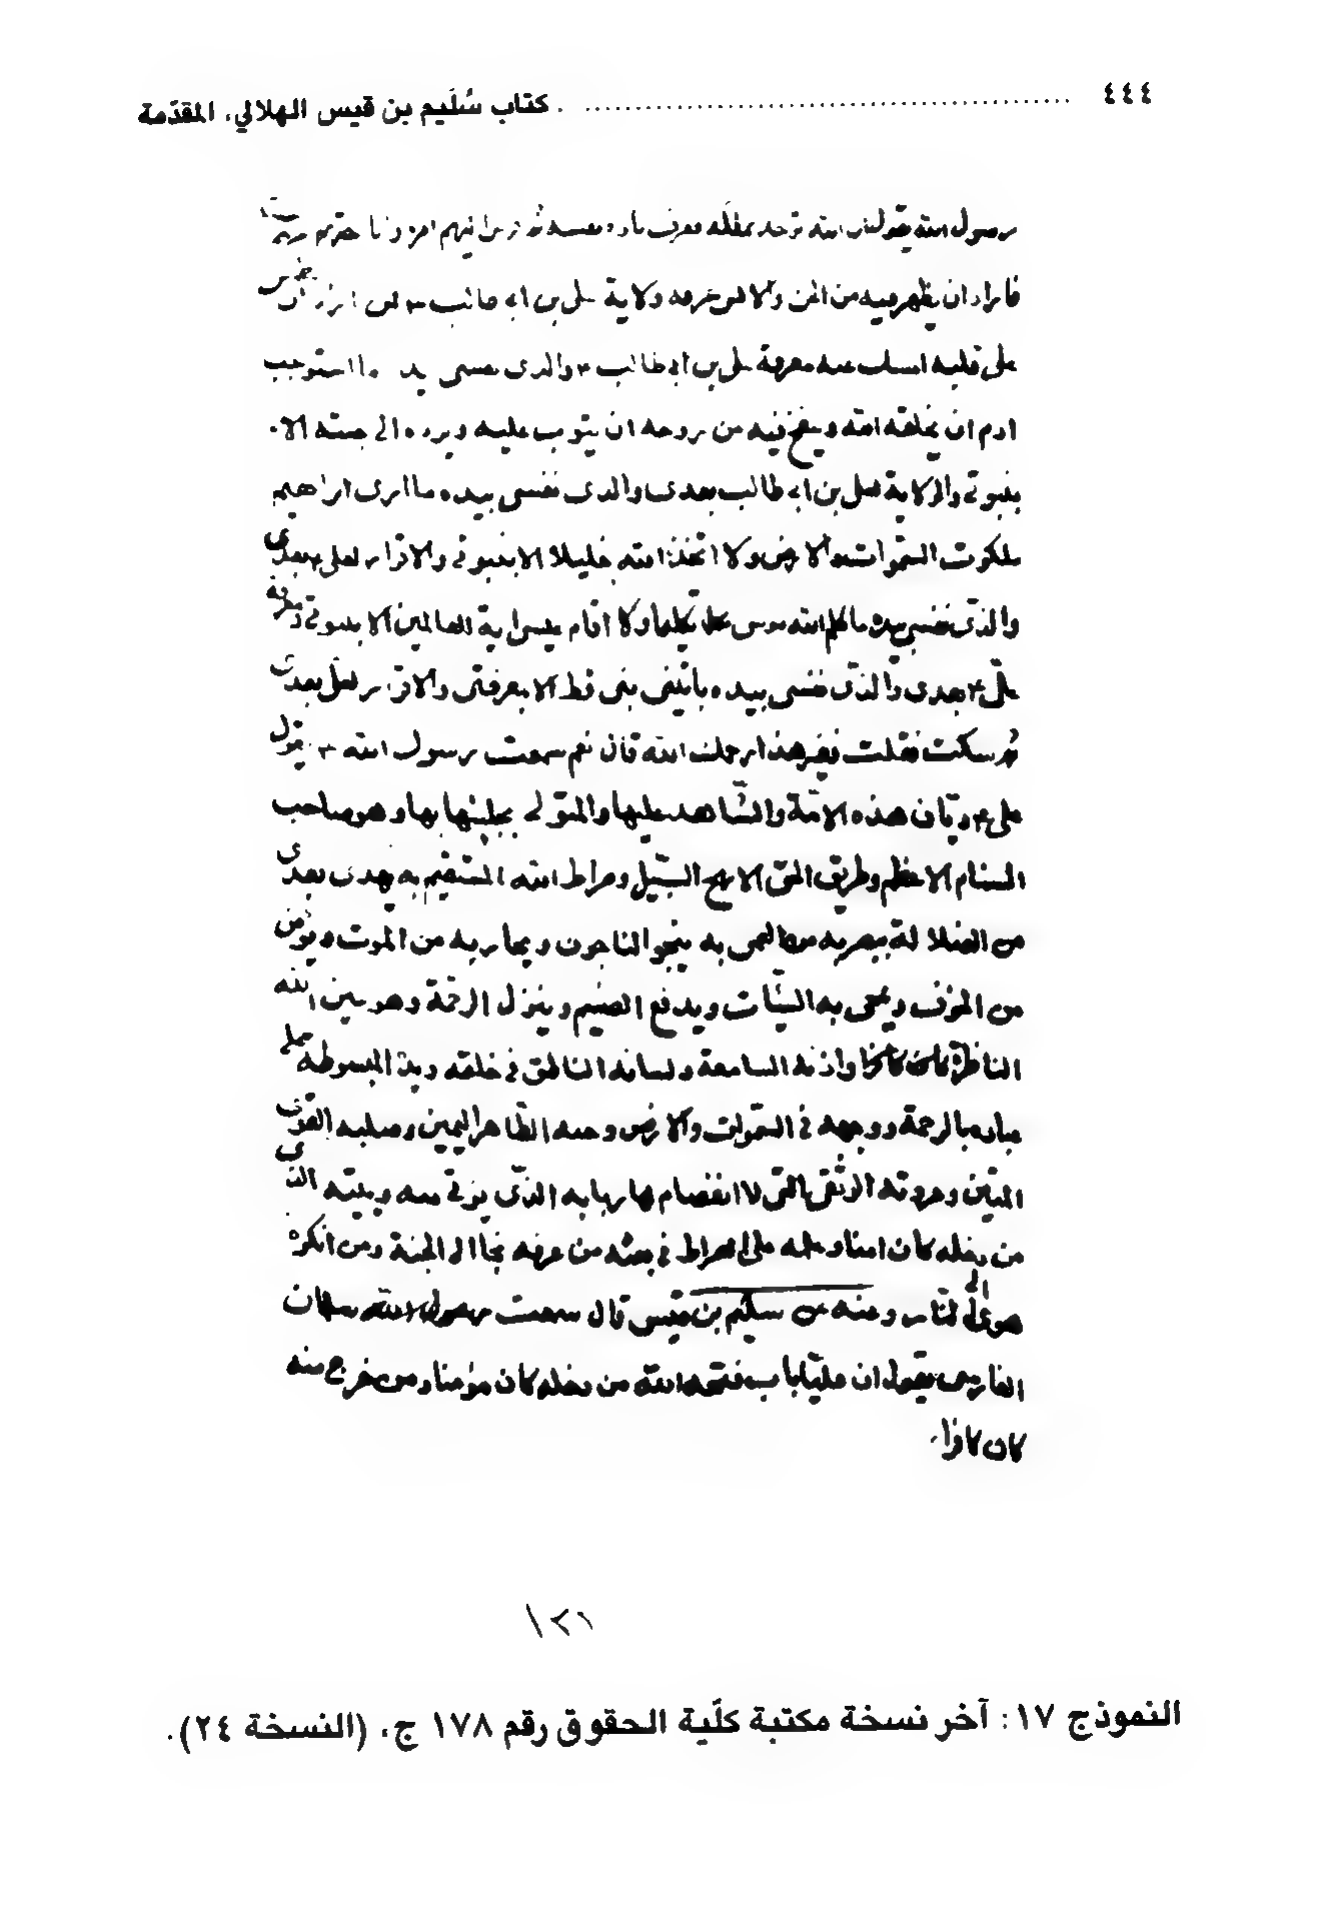 ٤٤٤ ........ كتاب سُلَيم بن قيس الهلالي، المقدّمة
رسول الله يقول ان الله توحد بملكه فعرف
فاراد ان يطهر قلبه من الجن والانس عرفه ولاية على بن ابى طالب ومن اراد ان يطمس
على قلبه امسك عنه معرفة على بن ابى طالب والذى نفسى بيده ما استوجب
ادم ان يخلقه الله وينفخ فيه من روحه ان يتوب عليه ويرده الى جنته الا
بنبوتى والولاية لعلى بن ابى طالب بعدى والذى نفسى بيده ما ارى ابراهيم
ملكوت السموات والارض ولا اتخذ الله خليلا الا بنبوتى والاقرار لعلى بعدى
والذى نفسى بيده ما كلم الله موسى تكليما ولا اقام عيسى اية للعالمين الا بنبوتى ومعرفة
علىّ بعدى والذى نفسى بيده ما تنبى نبى قط الا بمعرفتى والاقرار لعلى بعدى
ثم سكت فقلت غير هذا رحمك الله قال نعم سمعت رسول الله يقول
على ديان هذه الامة والشاهد عليها والمتولى بها وهو صاحب
السنام الاعظم وطريق الحق الابهج السبيل وصراط الله المستقيم به يهدى بعدى
من الضلالة يبصر به من العمى به ينجو الناجون ويجار به من الموت ويؤمن
من الخوف ويمحى به السيّئات ويدفع الضيم وينزل الرحمة وهو عين الله
الناظرة واذنه السامعة ولسانه الناطق فى خلقه ويده المبسوطة على
عباده بالرحمة ووجهه فى السموات والارض وجنبه الظاهر اليمين وحبله القوى
المتين وعروته الوثقى التى لا انفصام لها وبابه الذى يؤتى منه وبيته الذى
من دخله كان امنا وعلمه على الصراط فى بعثه من عرفه نجا الى الجنة ومن انكره
هوى الى النار وعنه عن سليم بن قيس قال سمعت سلمان
الفارسى يقول ان عليّا باب فتحه الله من دخله كان مؤمنا ومن خرج منه
كان كافرا
١٢١
النموذج ١٧: آخر نسخة مكتبة كلّية الحقوق رقم ١٧٨ ج، (النسخة ٢٤).